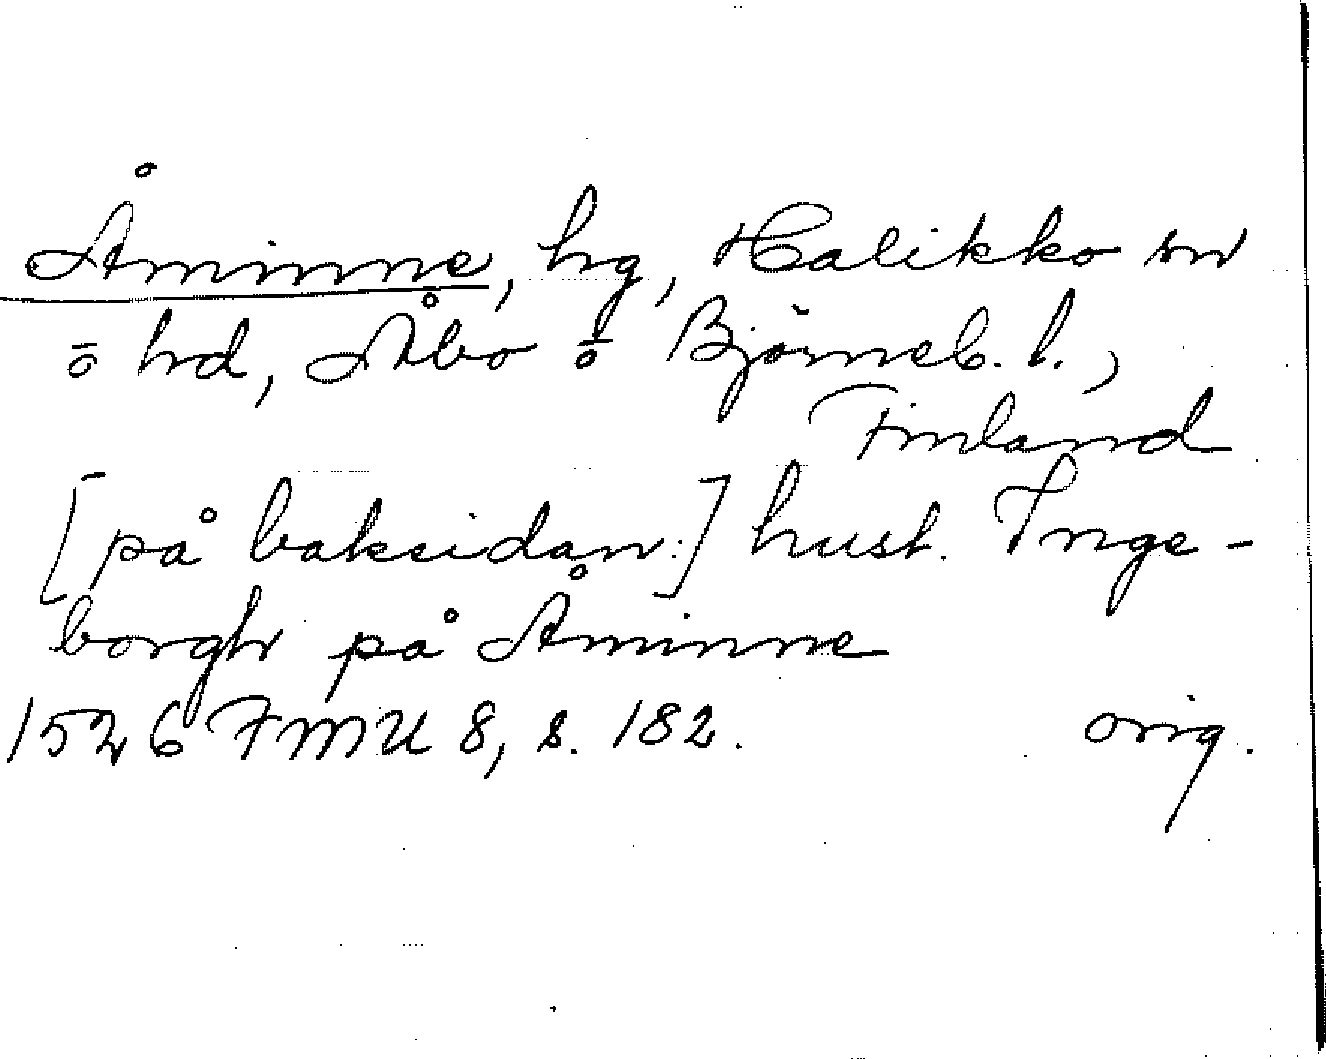 Åminne, hg, Halikko sn
o hd, Åbo o Björneb. l.,
Finland
[på baksidan:] hust. Inge-
borgh på Åminne
1526 FMU 8, s. 182. orig.